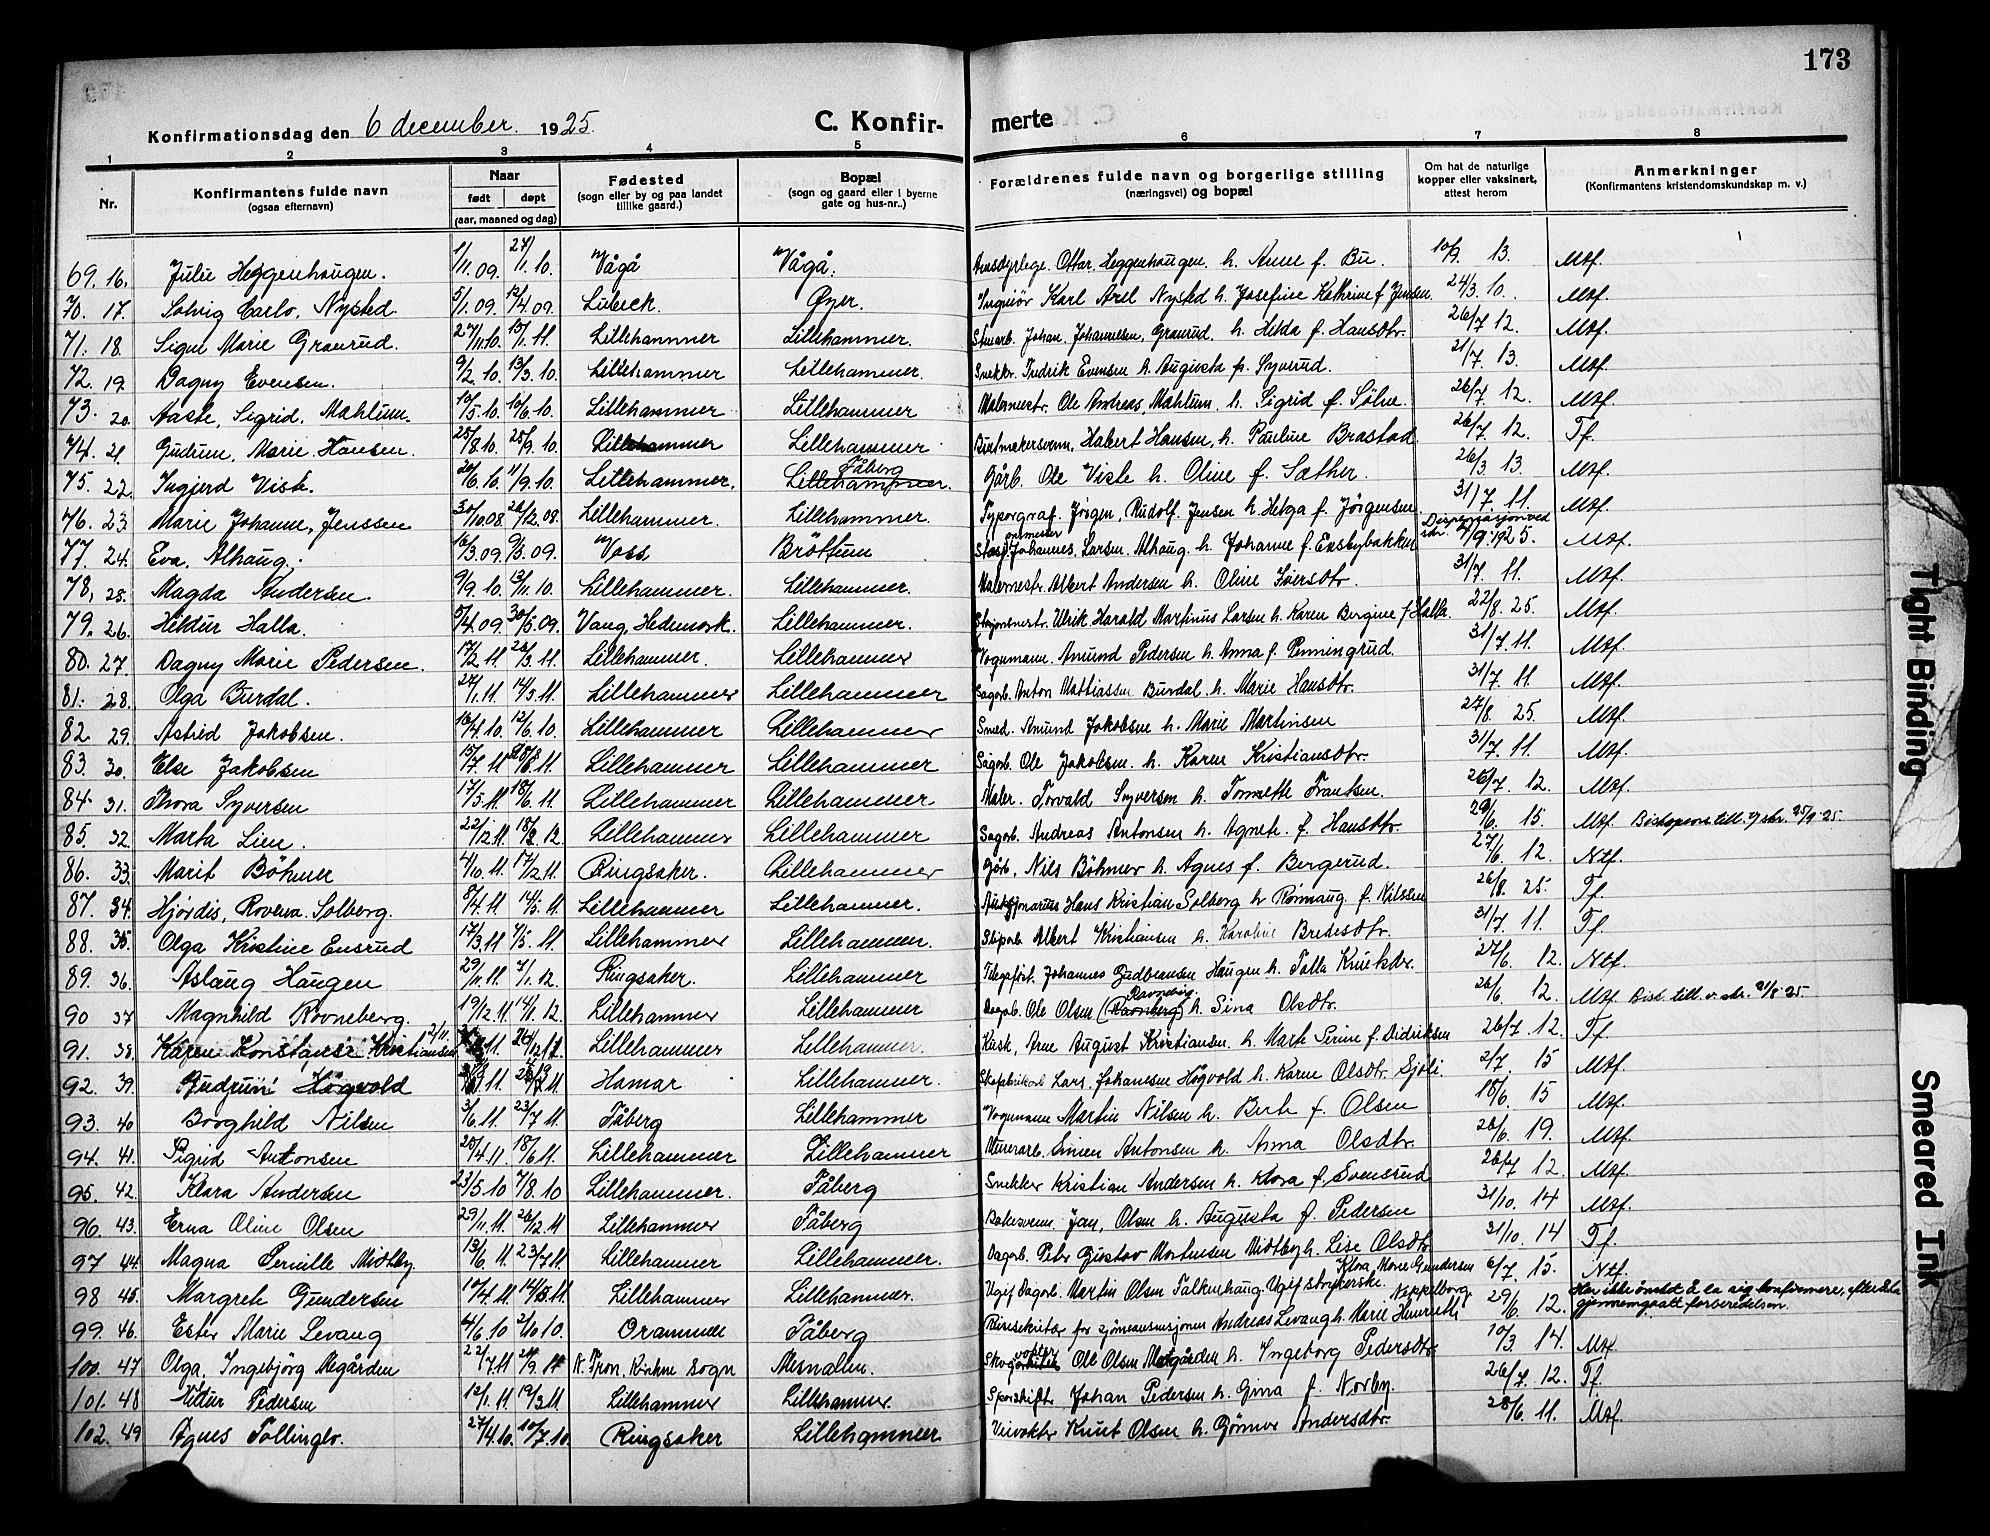 173
Konfirmationsdag den 6 december. 1925. C. Konfir- merte
1 2 3 4 5 6 7 8
Nr. Konfirmantens fulde navn (ogsaa efternavn) Naar født døpt (aar, maaned og dag) Fødested (sogn eller by og paa landet tillike gaard.) Bopæl (sogn og gaard eller i byerne gate og hus-nr..) Forældrenes fulde navn og borgerlige stilling (næringsvei) og bopæl Om hat de naturlige kopper eller vaksinert, attest herom Anmerkninger (Konfirmantens kristendomskundskap m. v.)
69. 16. Julie Heggenhaugen. 1/11.09. 27/1.10. Vågå Vågå. Ottar. Heggenhaugen. h. Anne f. Bu. 10/9 13. Mtf.
70. 17. Solvig Carlo. Nysted 5/1.09. 12/4.09. Lübeck. Øyer. Ingeniör Karl Axel Nysted h. Josefine Kathrine f Jensen. 24/3. 10. Mtf.
71. 18. Signe Marie Granrud. 27/11.10. 15/1.11. Lillehammer Lillehammer. Johan. Johannesen, Granrud. h. Helda f. Hansdtr. 26/7 12. Mtf.
72. 19. Dagny Evensen. 9/2.10. 13/3.10. Lillehammer Lillehammer. Snekkr. Fredrik Evensen h. Augusta f. Syverud. 21/7. 13. Mtf.
73. 20. Aaste, Sigrid, Mahlum. 10/5.10. 19/6.10. Lillehammer Lillehammer Malermestr. Ole Andreas, Mahlum. h. Sigrid f. Sölve. 26/7. 12. Mtf.
74. 21. Gudrun, Marie Hansen. 25/8.10. 25/9.10. Lillehammer Lillehammer Halbert Hansen, h. Pauline Brastad 26/7. 12. Tf.
75. 22. Ingjerd Viste. 20/6.10. 11/9.10. Lillehammer. Tåberg Lillehammer. Gårb. Ole Viste h. Oline f. Sæther. 26/3 13. Mtf.
76. 23 Marie Johanne, Jenssen 30/10.08. 26/12.08. Lillehammer. Lillehammer. Typograf. Jörgen, Rudolf. Jensen h. Helga f. Jörgensen. 31/7. 11. Mtf.
77. 24. Eva, Alhaug. 16/3.09. 9/5.09. Voss Bröttum Johannes, Larsen. Alhaug. h. Johanne f. Ensbybakken Dispensasjon ved skr. 7/9.1925. Mtf.
78. 25. Magda Andersen. 9/9.10. 13/11.10. Lillehammer. Lillehammer. Malermestr. Albert Andersen h. Oline Iversdtr. 31/7. 11. Mtf.
79. 26. Hildur Halla. 5/4.09. 30/5.09. Vang, Hedemark. Lillehammer. Ulrik Harald Martinus Larsen h. Karen Bergine f Halla. 22/8. 25. Mtf.
80. 27. Dagny Marie Pedersen. 17/2.11. 26/3.11. Lillehammer. Lillehammer Vognmann. Amund Pedersen h. Anna f. Penningrud. 31/7.11. Mtf.
81. 28. Olga Burdal. 27/1.11. 14/5.11. Lillehammer Lillehammer Sagarb. Anton Mattiassen Burdal. h. Marie Hansdtr. 31/7. 11. Mtf.
82 29. Astrid Jakobsen. 16/4.10. 12/6.10. Lillehammer Lillehammer Smed. Amund Jakobsen h. Marie Martinsen 27/8. 25. Mtf.
83. 30. Else Jakobsen 15/7.11 Lillehammer Lillehammer Sagarb. Ole Jakobsen. h. Karen Kristiansdtr. 31/7. 11. Mtf.
84. 31. Thora Syversen 17/5.11 18/6.11 Lillehammer Lillehammer Maler. Torvald Syversen h. Tomette Frantsen. 26/7. 12. Mtf.
85. 32. Marta Lien. 22/12.11. 18/2.12. Lillehammer Lillehammer Sagarb. Andreas Antonsen h. Agnete. f. Hansdtr. 29/6. 15. Mtf. Biskopens till. v/ skr. 25/9.25.
86. 33. Marit Böhmer 4/10.11. 17/12.11. Ringsaker. Lillehammer Gårb. Nils Böhmer h. Agnes f. Bergerud. 27/6. 12. Ntf.
87. 34. Hjördis, Rovena. Solberg. 8/4.11 14/5.11 Lillehammer Lillehammer. Hans Kristian Solberg h Rönnaug. f. Nilssen 26/8. 25. Tf.
88. 35. Olga Kristine Ensrud 17/3.11 7/5.11. Lillehammer Lillehammer. Albert Kristiansen h. Karoline Bredesdtr. 31/7. 11. Tf.
89. 36. Aslaug Haugen 29/11.11. 7/1.12. Ringsaker. Lillehammer Johannes Gudbransen Haugen h. Talla Knutsdtr. 27/6. 12. Ntf.
90 37 Magnhild Rovneberg. 19/12.11 14/1.12. Lillehammer Lillehammer Dagarb. Ole Olsen (Ravneberg) h. Sina Olsdtr. 26/6 12. Mtf. Bisk till. v. skr. 21/8.25.
91. 38. Karen Konstanse Kristiansen 2/11. Lillehammer Lillehammer. Kusk, Arne August Kristiansen. h. Marte Serine f. Didriksen 26/7. 12. Tf.
92. 39. Gudrun Högvold Hamar Lillehammer. Lars. Johansen Högvold h. Karen Olsdtr. Sjöli. 2/7. 15 Mtf.
93. 40 Borghild Nilsen 3/6.11. 23/7.11. Tåberg Lillehammer Vognmann Martin Nilsen h. Berte f. Olsen 18/6. 15 Mtf.
94. 41. Sigrid Antonsen 25/4.11. 18/6.11. Lillehammer Lillehammer Antonsen h. Anna Olsdtr. 26/6. 19. Mtf.
95. 42. Klara Andersen 23/5.10 7/8.10 Lillehammer. Tåberg Snekker Kristian Andersen h. Klara f. Svensrud 26/7. 12. Mtf.
96. 43. Erna Oline Olsen 29/11.11. 26/12.11 Lillehammer Tåberg Bakesvenn. Jan, Olsen h. Augusta f. Pedersen 31/10. 14 Mtf.
97 44. Magna Pernille Midtby 13/6.11. 23/7.11. Lillehammer Lillehammer. Dagarb. Peter Gustav Mortensen Midtby h. Lise Olsdtr. 31/10. 14 Tf.
98 45. Margrete Gundersen 10/4.11. 14/5.11. Lillehammer Lillehammer. Ugift Dagarb. Martin Olsen Falkenhaug. Ugift strykerske. Klara, Marie Gundersen 6/7. 15. Ntf.
99. 46. Ester Marie Levang 4/6.10 2/10.10. Tåberg Andreas Levang h. Marie Henriette Neppelborg 29/6. 12. Har ikke önsket å la sig konfirmere, efter å ha gjennemgaatt forberedelsen.
100. 47 Olga, Ingebjörg Megården 22/7.11 N. Fron. Kirkne sogn Mesnalien. Ole Olsen Megården h. Ingeborg Pedersdtr. 10/3. 14. Mtf.
101. 48 Hildur Pedersen 12/1.11. 12/3.11. Lillehammer Lillehammer. Sporskifter Johan Pedersen h. Gina f. Norby. 26/7. 12. Tf.
102. 49 Agnes Tollinglo. 27/4.10. 10/7.10. Ringsaker Lillehammer Veivokter Knut Olsen h. Gönnor Andersdtr. 28/6. 11. Mtf.
Tight Binding
Smeared Ink